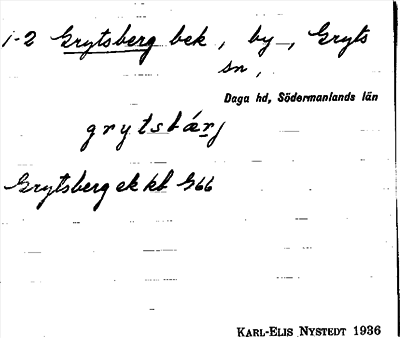 1-2 Grytsberg bek, by –, Gryts
sn,
Daga hd, Södermanlands län
grytsbärj
Grytsberg ek kb G66
KARL-ELIS NYSTEDT 1936